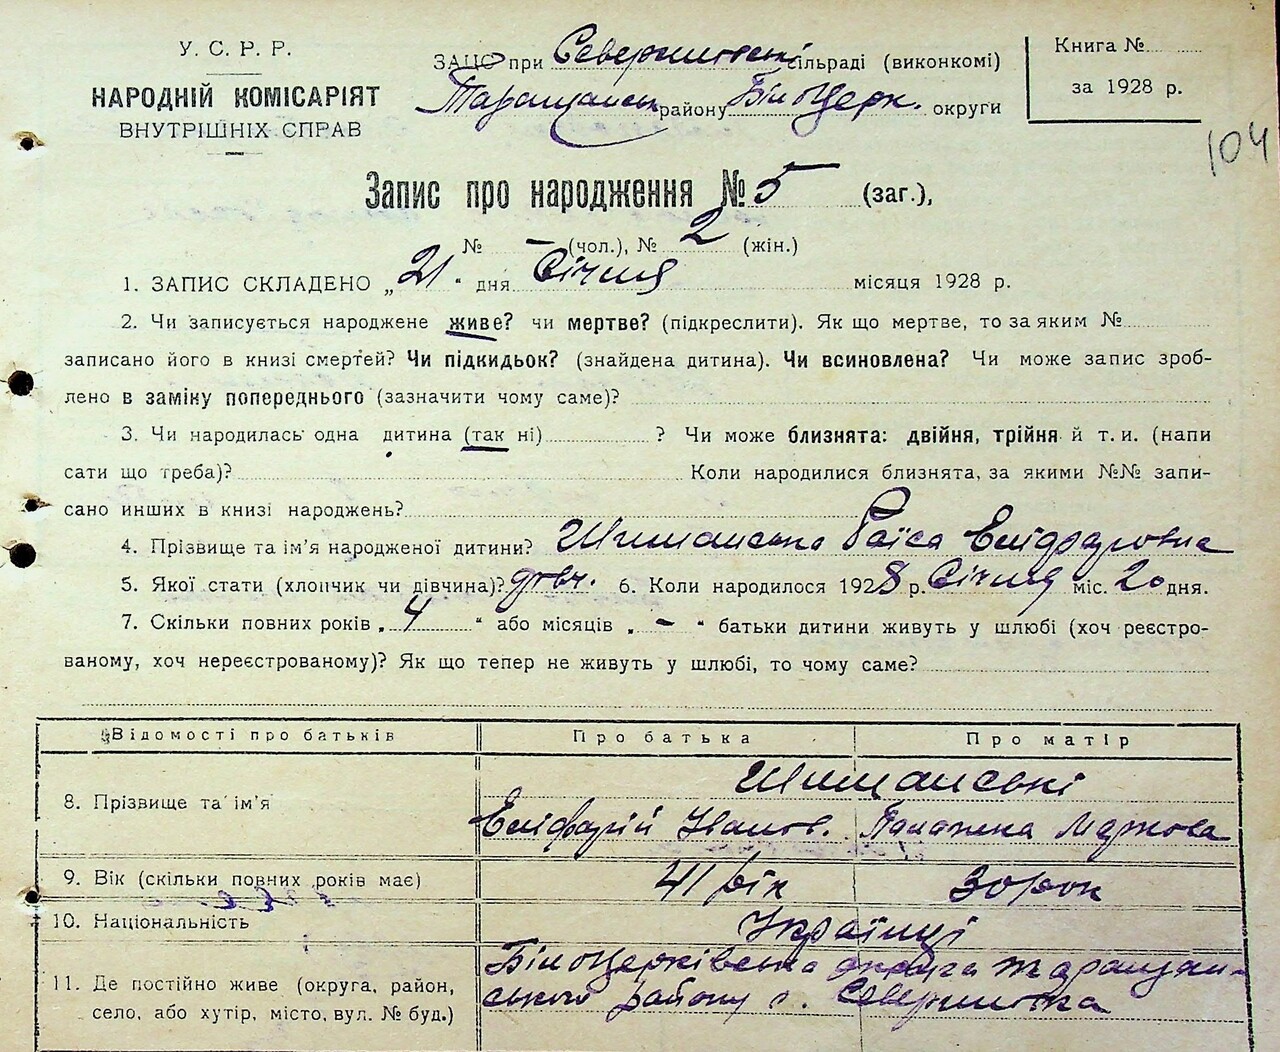 У. С. Р. Р.
НАРОДНІЙ КОМІСАРІЯТ
ВНУТРІШНІХ СПРАВ
ЗАЦС при Северинівські сільраді (виконкомі)
Таращанськ району Білоцерк. округи
Книга №
за 1928 р.
104
Запис про народження № 5 (заг.),
№ – (чол.), № 2 (жін.)
1. ЗАПИС СКЛАДЕНО „21“ дня Січня місяця 1928 р.
2. Чи записується народжене живе? чи мертве? (підкреслити). Як що мертве, то за яким №
записано його в книзі смертей? Чи підкидьок? (знайдена дитина). Чи всиновлена? Чи може запис зроб-
лено в заміну попереднього (зазначити чому саме)?
3. Чи народилась одна дитина (так ні) ? Чи може близнята: двійня, трійня й т. и. (напи
сати що треба)? Коли народилися близнята, за якими №№ запи-
сано инших в книзі народжень?
4. Прізвище та ім'я народженої дитини? Шиманська Раїса Епіфаровна
5. Якої стати (хлопчик чи дівчина)? дівч. 6. Коли народилося 1928 р. Січня міс. 20 дня.
7. Скільки повних років „4“ або місяців „–“ батьки дитини живуть у шлюбі (хоч реєстро-
ваному, хоч нереєстрованому)? Як що тепер не живуть у шлюбі, то чому саме?
Відомості про батьків Про батька Про матір
Шиманські
8. Прізвище та ім'я Епіфарій Іванов. Палажка Маркова
9. Вік (скільки повних років має) 41 рік 30 рок
10. Національність Українці
11. Де постійно живе (округа, район,
село, або хутір, місто, вул. № буд.)
Білоцерківська округа Таращан-
ського району с. Северинівка